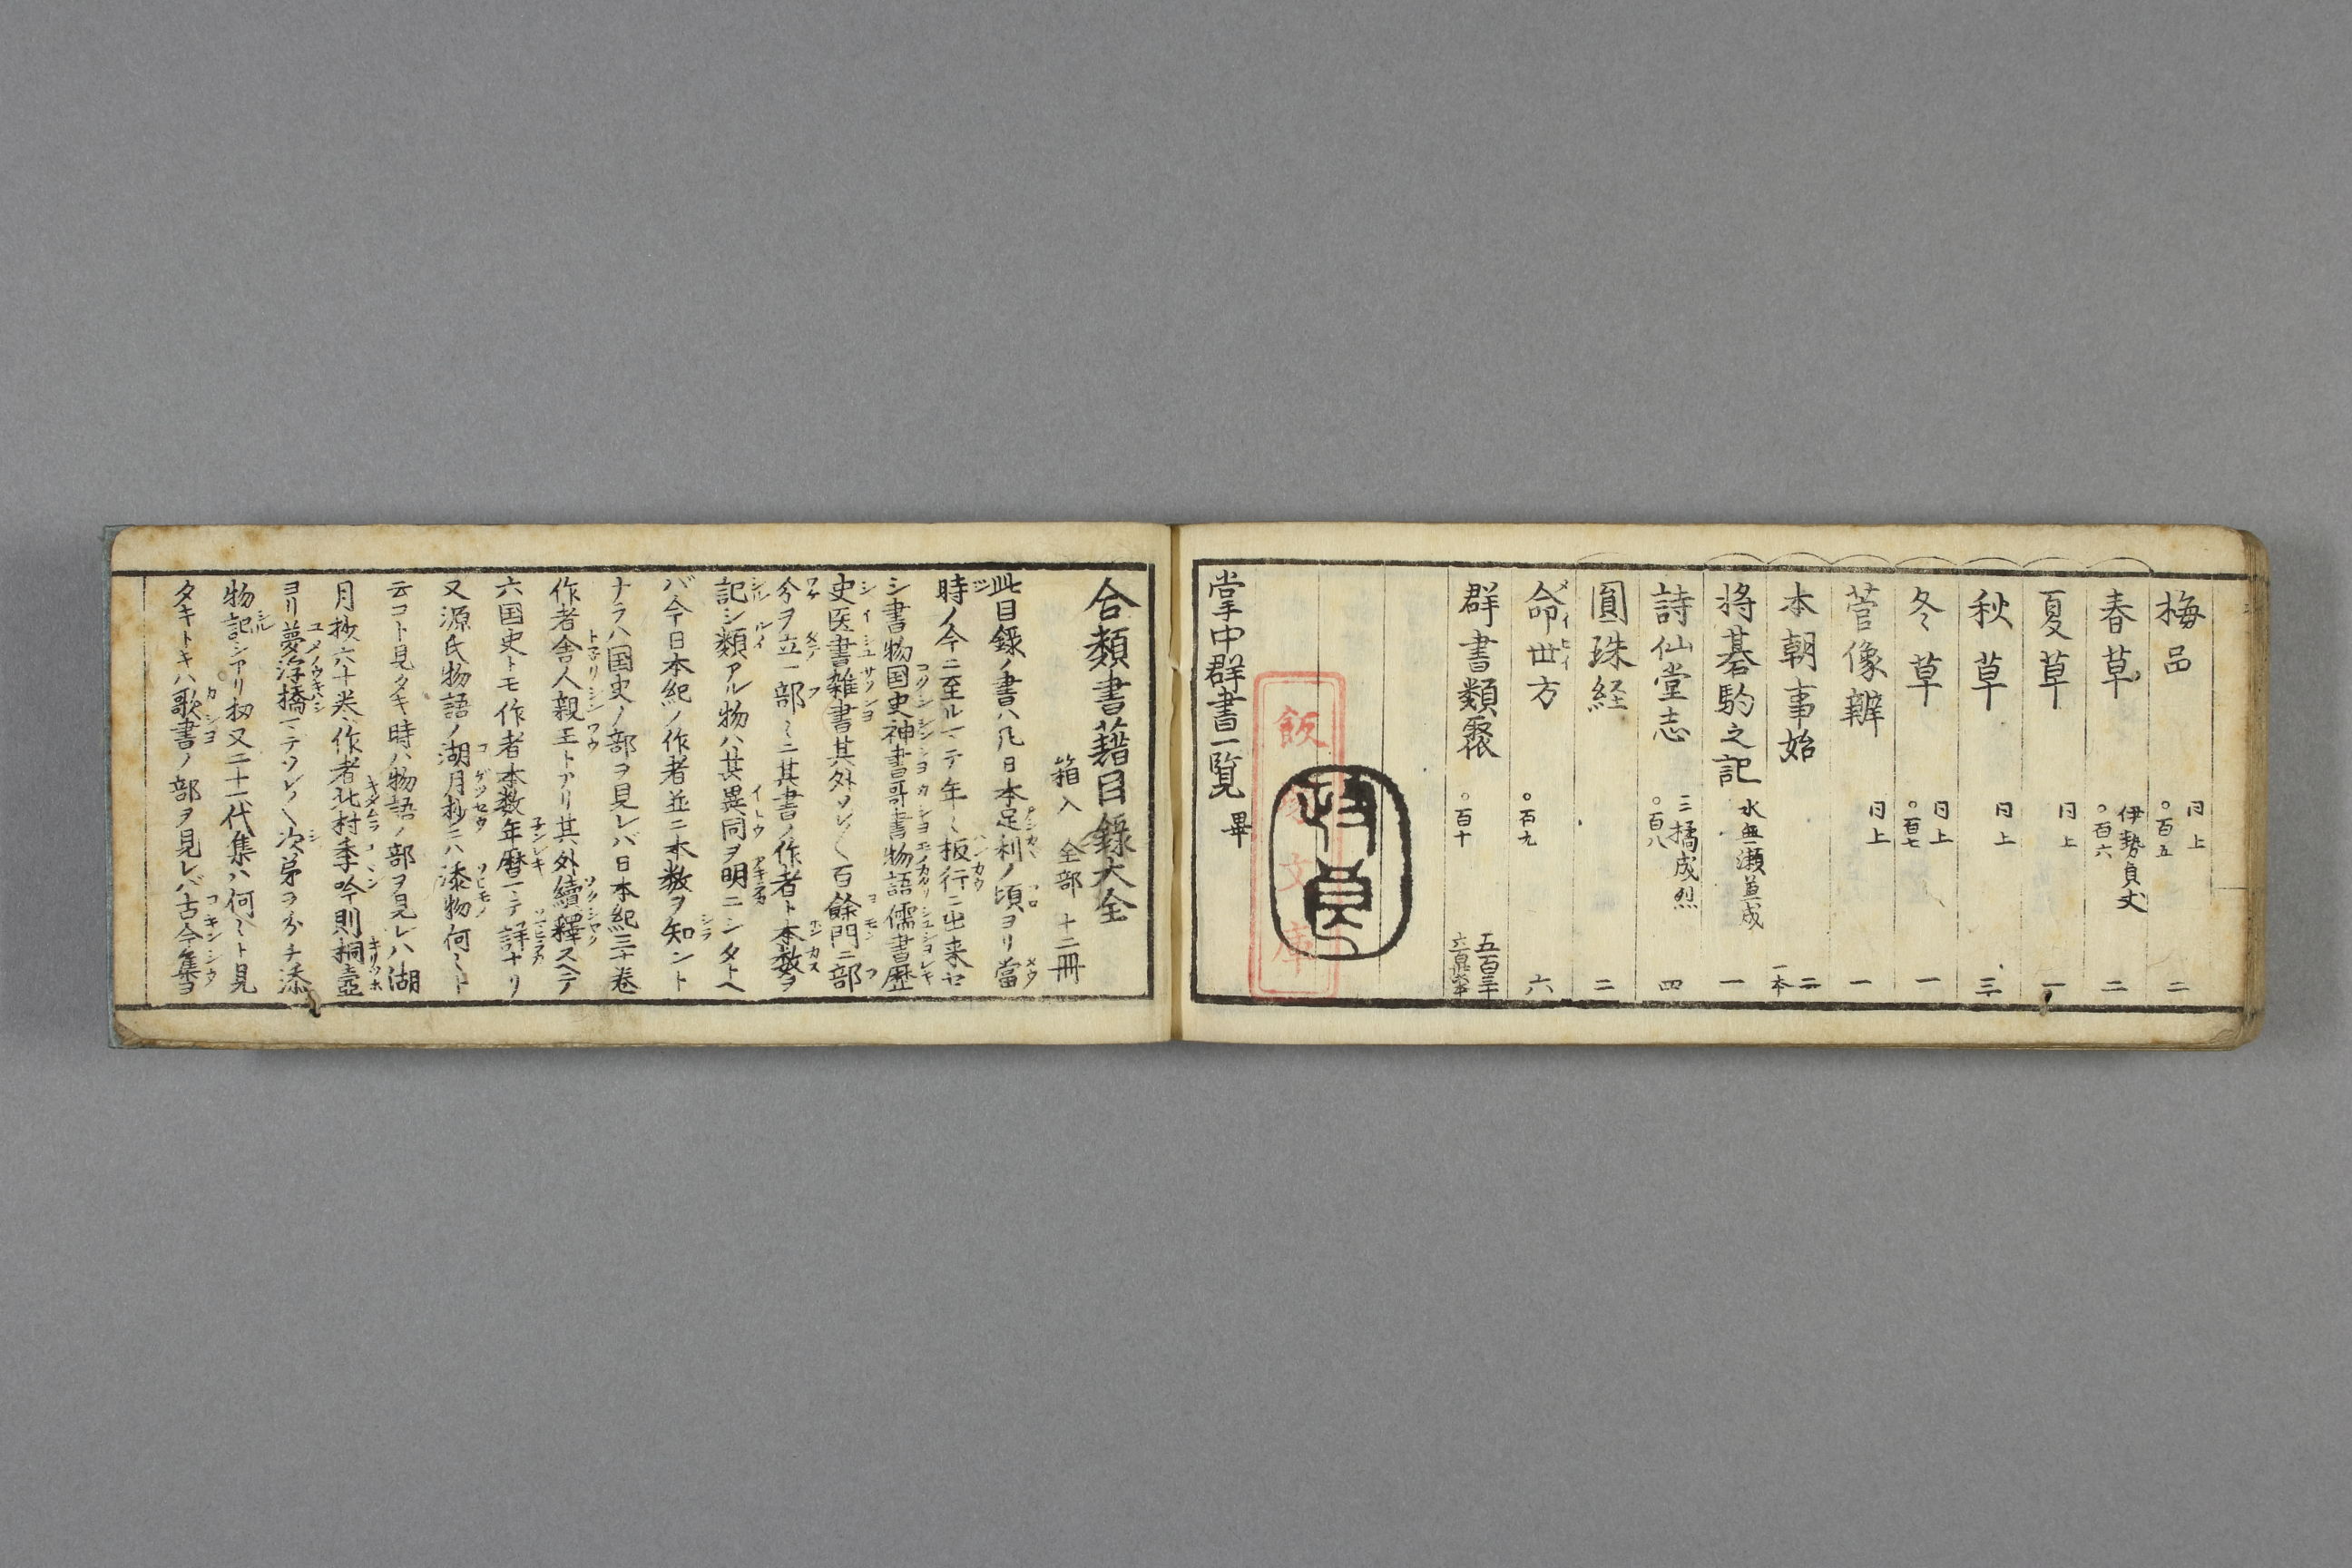 梅品 仝上 ○百五 二
春草 伊勢貞丈 ○百六 二
夏草 仝上 一
秋草 仝上 三
冬草 仝上 ○百七 一
菅像辨 仝上 一
本朝事始 二 一本
将棊駒之記 水無瀬兼成 一
詩仙堂志 三橘成烈 ○百八 四
圓珠経 二
命世方 ○百九 六
メイセイ
群書類聚 ○百十 五百三十
掌中群書一覧 畢
飯 文庫
合類書藉目録大全
箱入 全部 十二冊
此目録ノ書ハ凡日本足利ノ頃ヨリ當
時ノ今ニ至ルマテ年々板行ニ出来セ
シ書物国史神書哥書物語儒書歴
史医書雑書其外ソレ〱百餘門ニ部
今ヲ立一部々ニ其書ノ作者ト本数ヲ
記シ類アル物ハ其異同ヲ明ニシタトヘ
バ今日本紀ノ作者並ニ本数ヲ知ント
ナラハ国史ノ部ヲ見レバ日本紀三十巻
作者舎人親王トアリ其外續釋スヘテ
六国史トモ作者本数年暦マテ詳ナリ
又源氏物語ノ湖月抄ニハ添物何々ト
云コト見タキ時ハ物語ノ部ヲ見レハ湖
月抄六十巻作者北村季吟則桐壺
ヨリ夢浮橋マテソレ〱次第ヲ分チ添
物記シアリ扨又二十一代集ハ何々ト見
タキトキハ歌書ノ部ヲ見レバ古今集ヨ